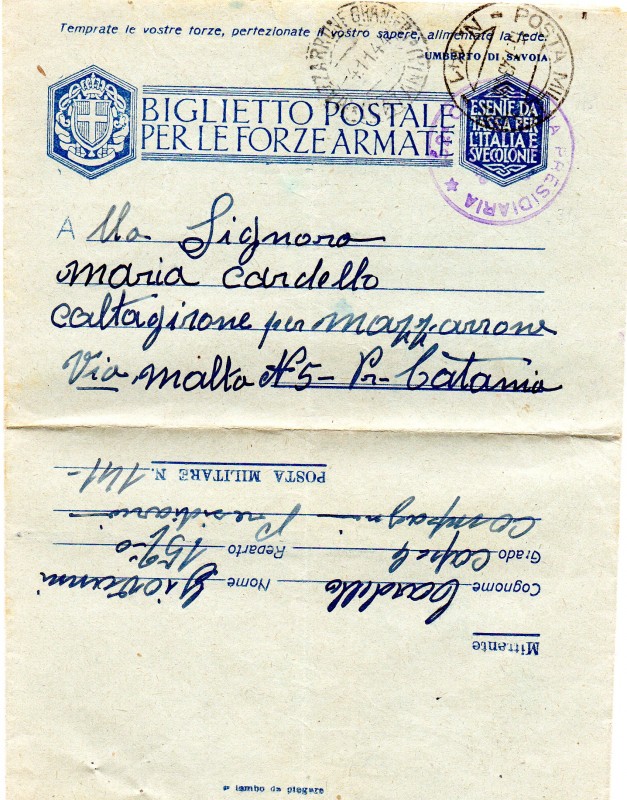 Temprate le vostre forze, perfezionate il vostro sapere, alimentate la fede.
UMBERTO DI SAVOIA
BIGLIETTO POSTALE
PER LE FORZE ARMATE
ESENTE DA
TASSA PER
L'ITALIA E
SVE COLONIE
POSTA MIL
PRESIDIARIA
A lla Signora
Maria Cardello
Caltagirone per Mazzarrone
Via Malta N 5 - Pr - Catania
Mittente
Cognome Cardello Nome Giovanni
Grado Cap Reparto 157
Compagni Presidiario
POSTA MILITARE N. 141 -
lembo da piegare